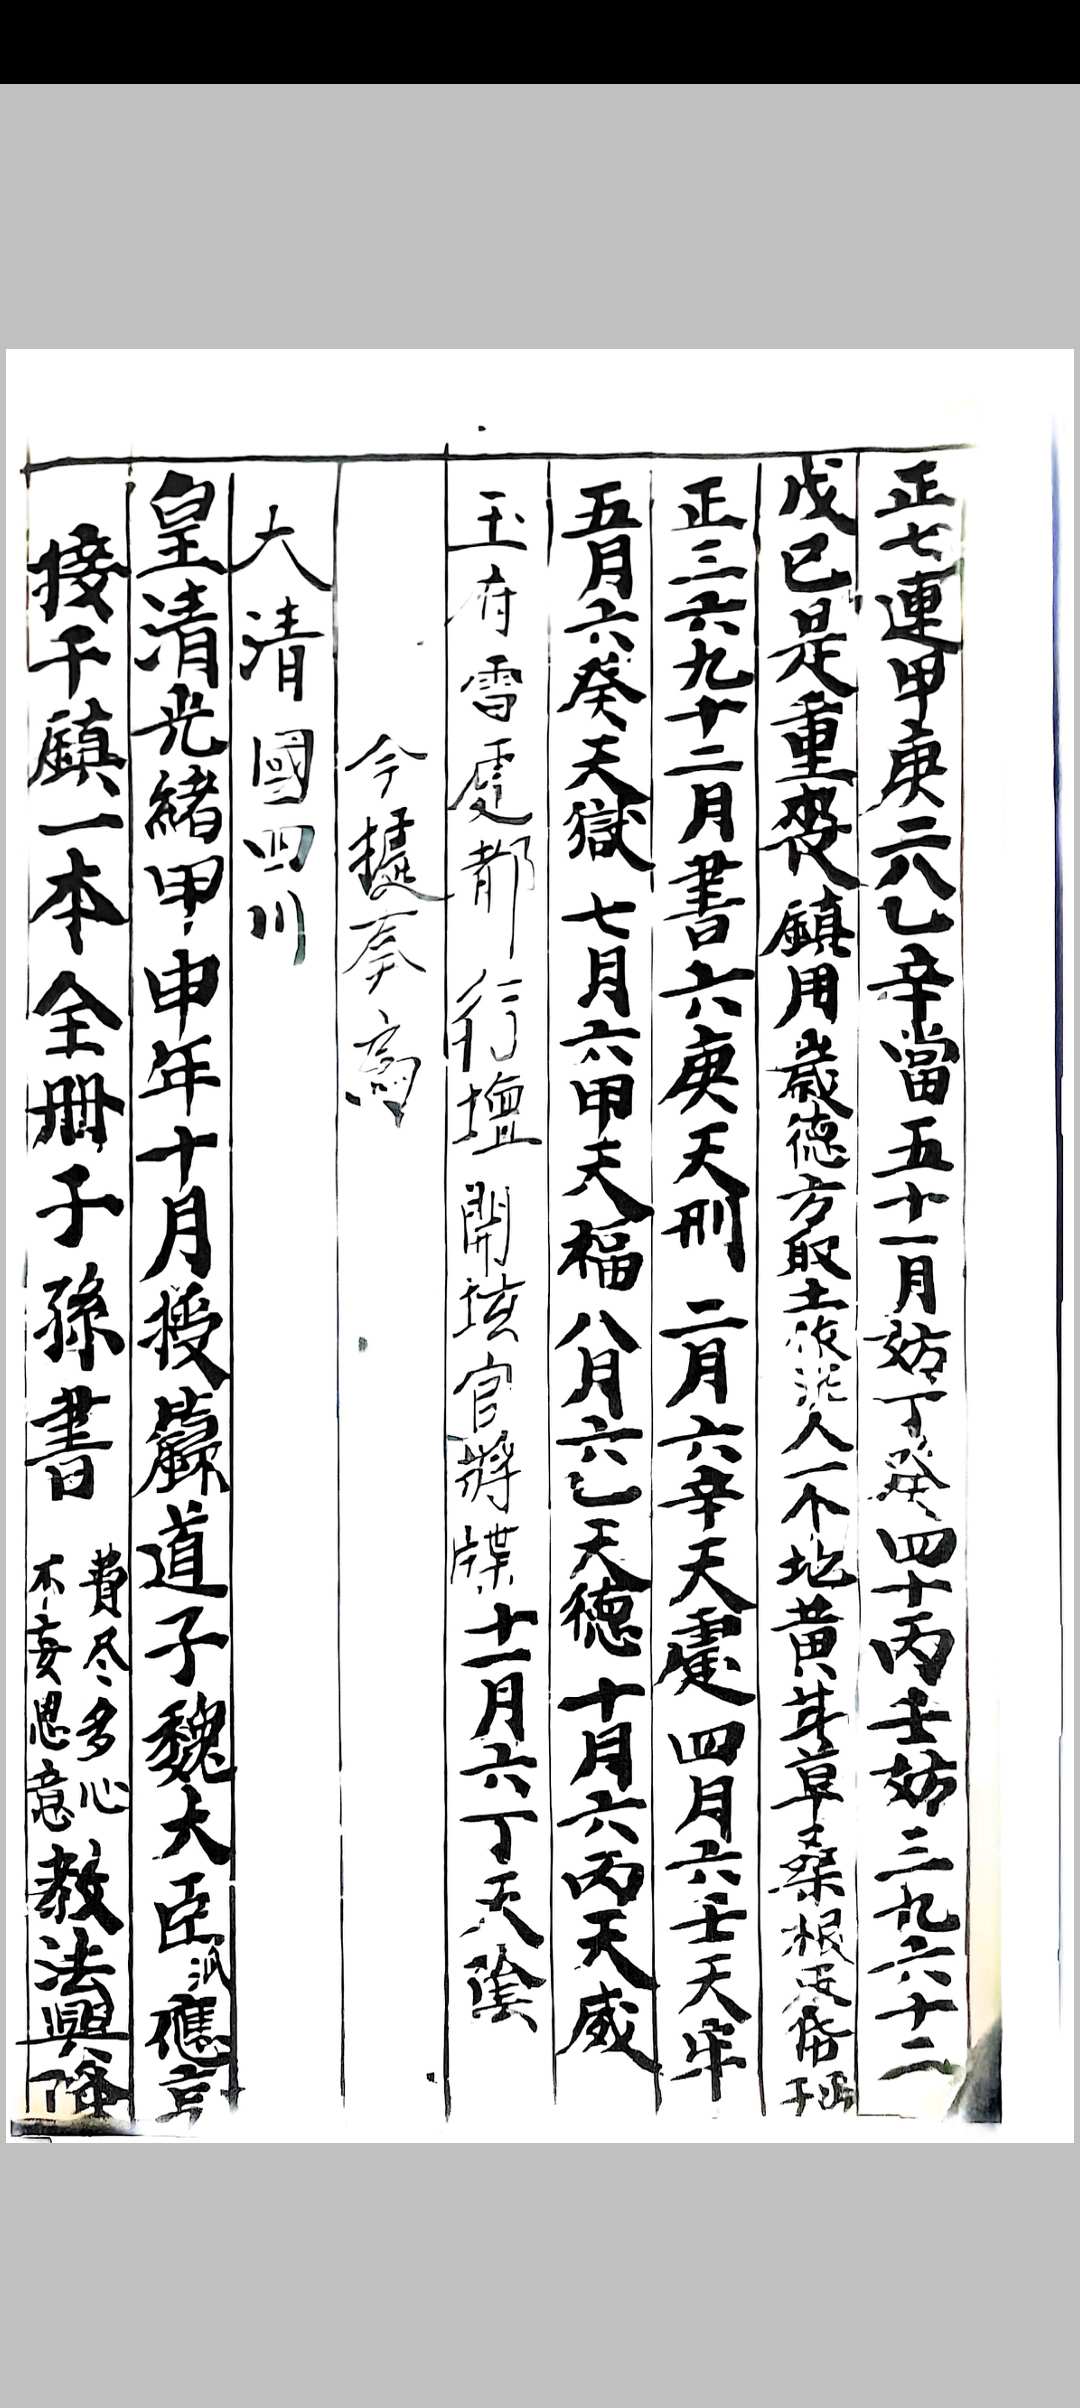 正七連甲庚二八乙辛當五十一月妨丁癸四十丙壬妨三九六十二
戊巳是重喪鎮用歲德方取土依泥人一个地黃茅草桑根皮
正三六九十二月書六庚天刑 二月六辛天霆 四月六壬天牢
五月六癸天獄 七月六甲天福 八月六乙天德 十月六丙天威
玉府雷霆都 行壇 開 官將牒 十一月六丁天陰
今據奏高
大清國四川
皇清光緒甲申年十月授籙道子魏大臣派應
接千鎮一本全册子孫書 費尽多心 不妄思意 教法興隆